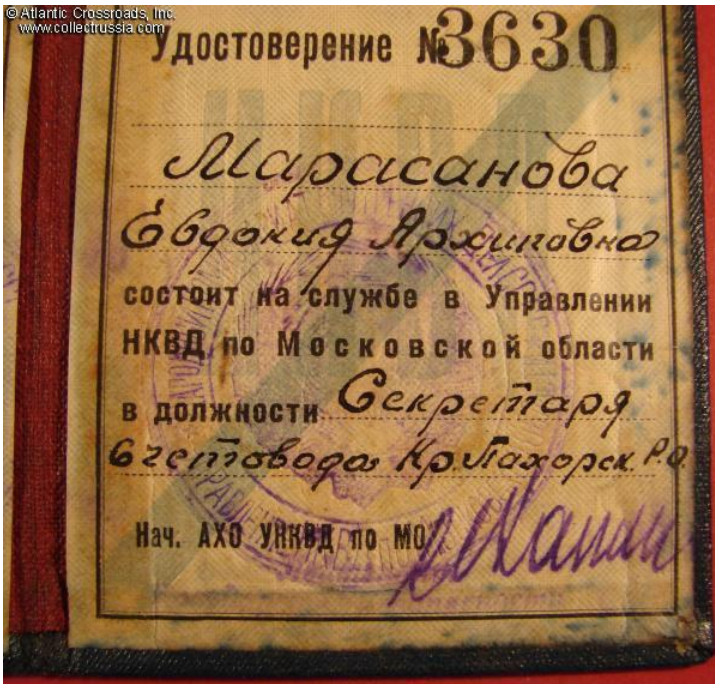 © Atlantic Crossroads, Inc.
www.collectrussia.com
Удостоверение №3630
Марасанова
Евдокия Архиповна
состоит на службе в Управлении
НКВД по Московской области
в должности Секретаря
Счетовода Кр. Пахорск. Р.О.
Нач. АХО УНКВД по МО